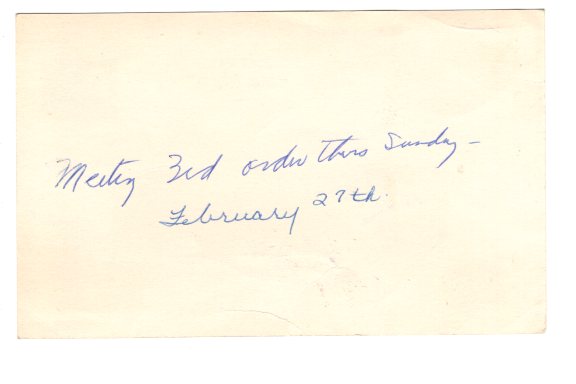 Meeting 3rd order this Sunday -
February 27th.